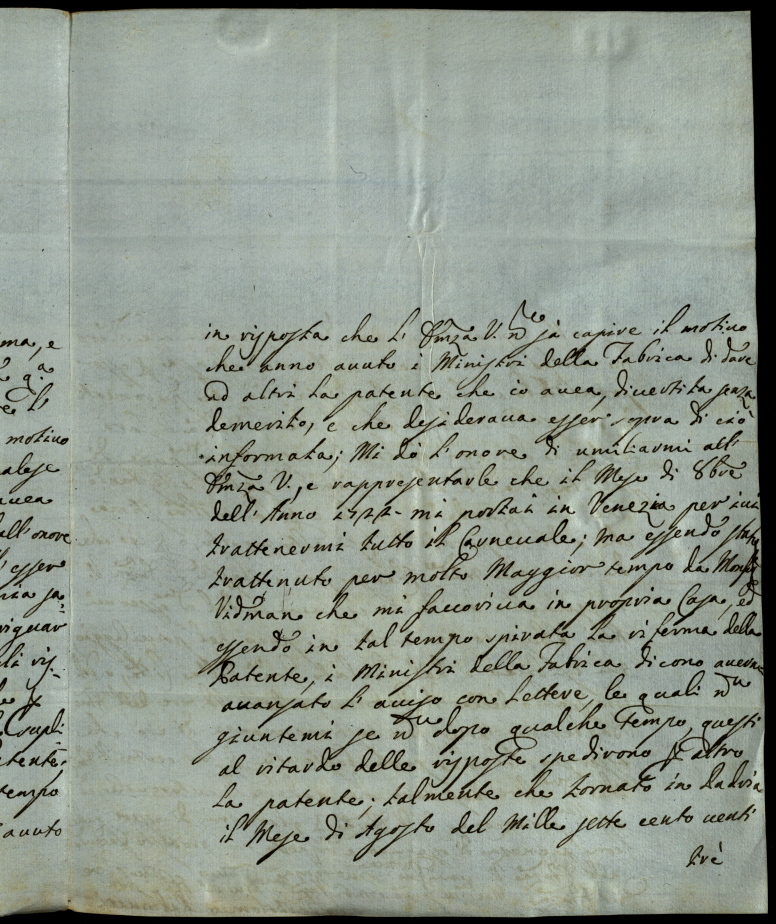 ma, e
q.ª
e L'
motivo
alese
avea
all'onore
esser
ia sa,,
riguar
li ris,,
supli
atente,
tempo
avuto
in risposta che L' Emza V. n.e sà capire il motivo
che anno avuto i Ministri della Fabrica di dare
ad altri La patente che io avea, divertita senza
demerito, e che desiderava esser sopra di ciò
informata; Mi dò L'onore di umiliarmi all'
Emza V., e rappresentarle che il Mese di 8bre
dell'Anno 1722 mi portai in Venezia per ivi
trattenermi tutto il Carnevale; ma essendo stato
trattenuto per molto Maggior tempo da
Vidman che mi favoriva in propria Casa, ed
essendo in tal tempo spirata La riferma della
Patente, i Ministri della Fabrica dicono avermi
avanzato L'aviso con Lettere, le quali nn
giuntemi se nn dopo qualche tempo, questi
al ritardo delle risposte spedirono altro
La patente; talmente che tornato in Padova
il Mese di Agosto del Mille sette cento venti
trè